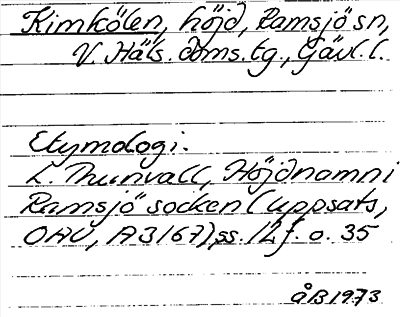 Kimkölen, höjd, Ramsjö sn,
V. Häls. doms. tg., Gävl. l.
Etymologi.
L. Thunvall, Höjdnamn i
Ramsjö socken (uppsats,
OAU, A3167), ss. 12 f. o. 35
ÅB 1973